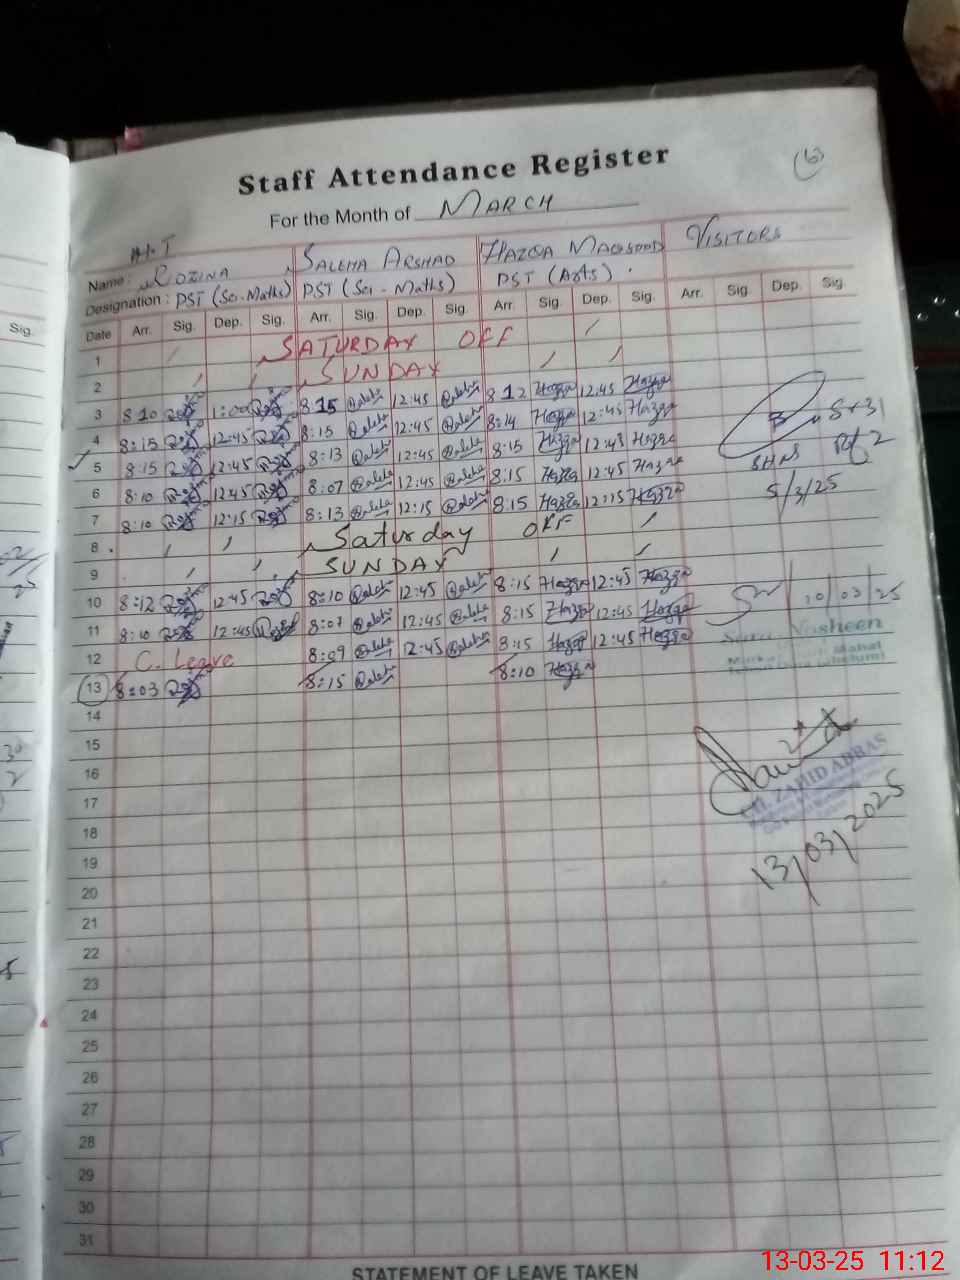 Staff Attendance Register
For the Month of MARCH
H.T
Name: ROZINA SALEHA ARSHAD HAZQA MAQSOOD VISITORS
Designation: PST (Sci-Maths) PST (Sci-Maths) PST (Arts)
Date Arr. Sig. Dep. Sig. Arr. Sig. Dep. Sig. Arr. Sig. Dep. Sig. Arr. Sig. Dep. Sig.
1 SATURDAY OFF
2 SUNDAY
3 8:10 1:00 8:15 Saleha 12:45 Saleha 8:12 Hazqa 12:45 Hazqa
4 8:15 12:45 8:15 Saleha 12:45 Saleha 8:14 Hazqa 12:45 Hazqa
5 8:15 12:45 8:13 Saleha 12:45 Saleha 8:15 Hazqa 12:45 Hazqa
6 8:10 12:45 8:07 Saleha 12:45 Saleha 8:15 Hazqa 12:45 Hazqa
7 8:10 12:15 8:13 Saleha 12:15 Saleha 8:15 Hazqa 12:15 Hazqa
8 Saturday OFF
9 SUNDAY
10 8:12 12:45 8:10 Saleha 12:45 Saleha 8:15 Hazqa 12:45 Hazqa
11 8:10 12:45 8:07 Saleha 12:45 Saleha 8:15 Hazqa 12:45 Hazqa
12 C. Leave 8:09 Saleha 12:45 Saleha 8:15 Hazqa 12:45 Hazqa
13 8:03 8:15 Saleha 8:10 Hazqa
14
15
16
17
18
19
20
21
22
23
24
25
26
27
28
29
30
31
5/3/25
10/03/25
Nosheen
ZAHID ABBAS
13/03/2025
STATEMENT OF LEAVE TAKEN
Sig.
13-03-25 11:12